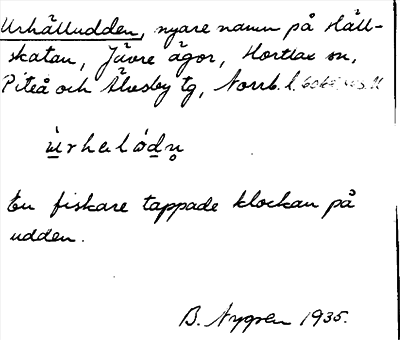 Urhälludden, nyare namn på Häll-
skatan, Jävre ägor, Hortlax sn,
Piteå och Älvsby tg, Norrb. l.
En fiskare tappade klockan på
udden.
B. Nygren 1935.